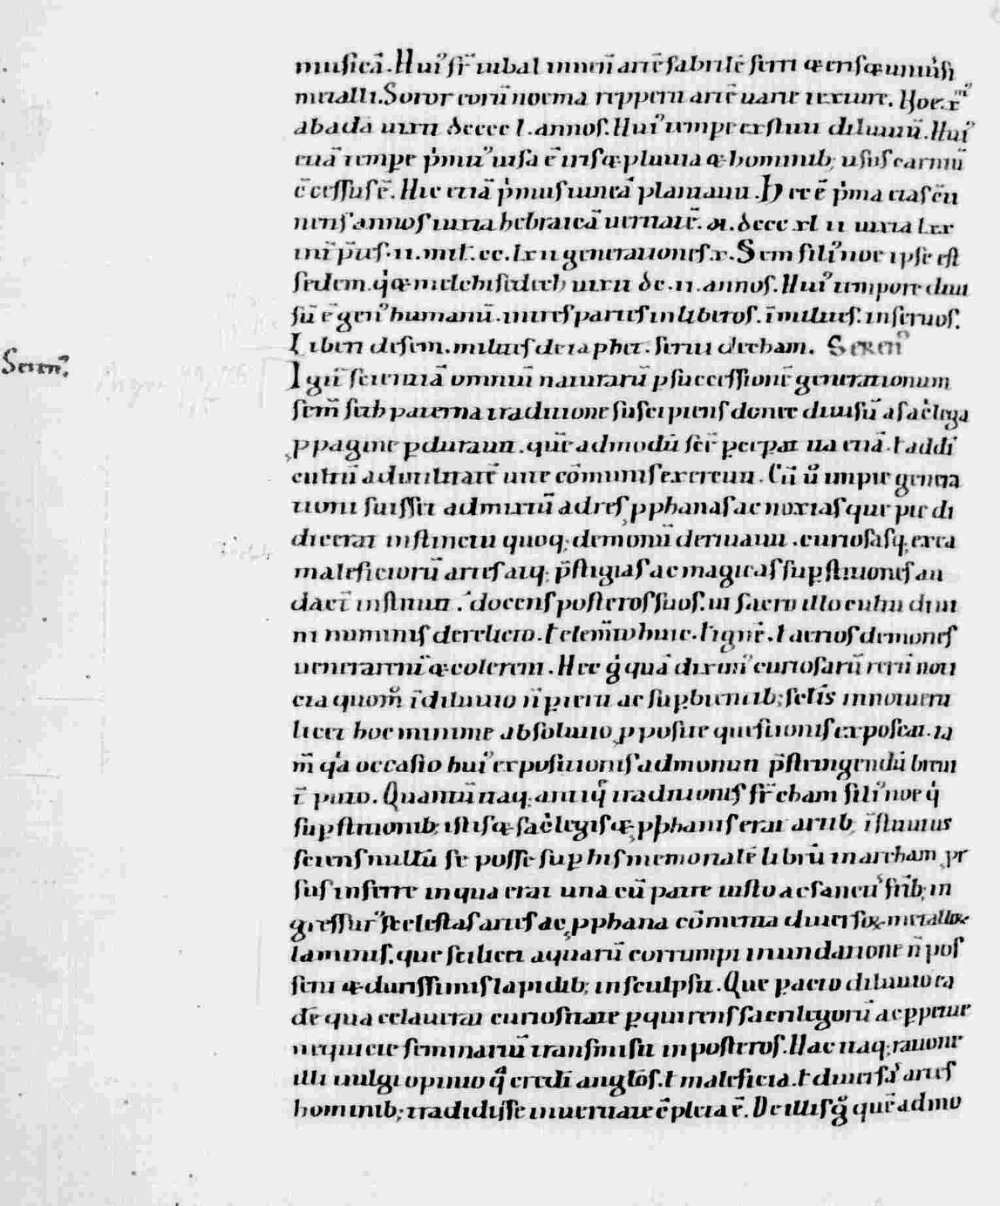 musicā. Hui' fr̄ tubal inuen̄ artē fabrilē ferri & ensæ uniu'si
metalli. Soror eorū noema repperit artē uarie texture. Hoe. x^mi
ab ada uixit dcccc l. annos. Hui' tempr̄e exstitit diluuiū. Hui'
etiā tempe p̄mū uisa ē iris & pluuia & hominib; usus carniū
c̄cessus ē. Hic etiā p̄mus uineā plantauit. Hec ē p̄ma etas c̄ti
nens annos iuxta hebraicā ueritatē. M. dccc xl ii iuxta lxx
int̄p̄t̄s. ii. mil. cc. lx ii generationes. x. Sem fili' noe ipse est
sedem. q̇ & melchisedech uixit dc. ii. annos. Hui' tempore diui
sū ē gen' humanū. in tres partes in liberos. ī milites. in seruos.
Liberi de sem. milites de iaphet. serui de cham. Seren'
Seren';
Igit̄ scientiā omniū naturarū p successionē generationum
sem̄ sub paterna traditione suscipiens donec diuisū a sac̄lega
ppagine pdurauit. quē admodū sc̄e per pat ita etiā. ł addi
cultū ad utilitatē uite cōmunis exercuit. Cū ū impie genera
tioni fuisset admixtū ad res pphanas ac noxias que pie di
dicerat instinctu quoq; demonū deriuauit. curiosasq; ex ea
maleficiorū artes atq; p̄stigias ac magicas supstitiones an
dacī instituit. docens posteros suos. ut sacro illo cultu diui
ni numinis derelicto. ł elem̄to huic. ł igne. ł aerios demones
uenerarent̄ & colerent. Hec g̊ quā diximi' curiosarū rerū noti
cia quom̊ ī diluuio n̄ pierit ac supuenientib; sclis innotuerit
licet hoc minime absolutio ppositę questionis exposcat. ta
m̄ q̇a occasio hui' expositionis admonuit p̄stringendū breui
t̄ puto. Quantū itaq; antiq̄ traditiones fr̄ cham fili' noe q̇
supstitionib; istis & sac̄legis & pphanis erat artib; īstitutus
sciens nullū se posse sup his memorialē librū in archam pr
sus inferre in qua erat una cū patre iusto ac sanctis frib; in
gressur' scelestas artes ac pphana cōmenta diuersoꝝ metalloꝝ
laminis. que scilicet aquarū corrumpi inundatione n̄ pos
sent & durissimis lapidib; insculpsit. Que pacto diluuio ea
dē qua celauerat curiositate pquirens sacrilegiorū ac ppetue
nequicie seminariū transmisit in posteros. Hac itaq; ratione
illi uulgi opinio q̄ credit anglōs. ł maleficia. ł diuersas artes
hominib; tradidisse in ueritate c̄pleta ē. De illis g̊ quē admo